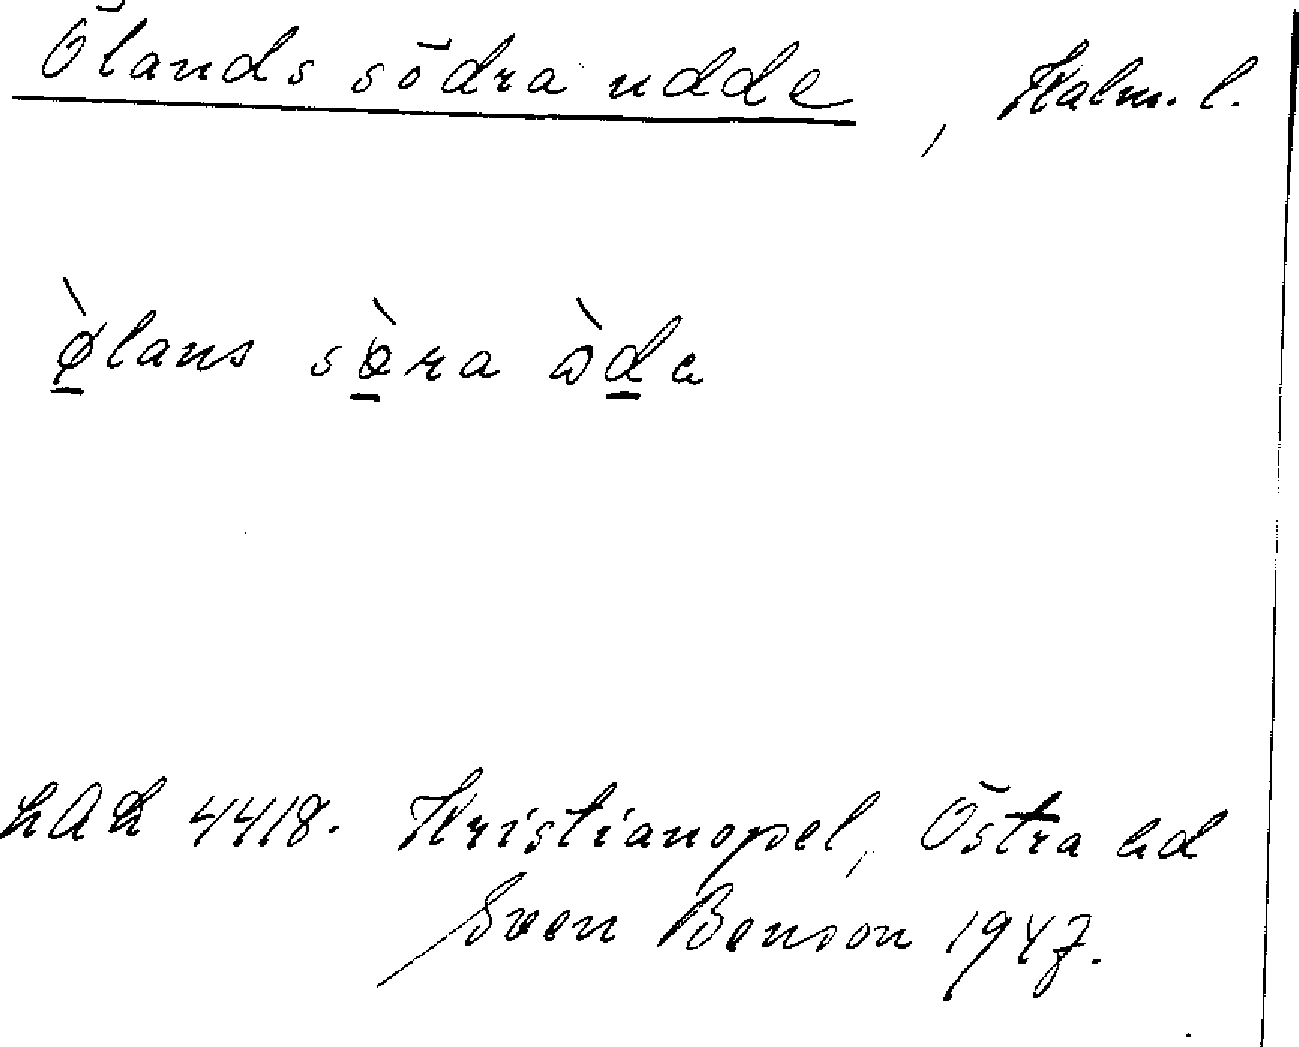 Ölands södra udde, Kalm. l.
ø̱̀lans sø̱̀ra ɷ̀ḏa
LAL 4418. Kristianopel, Östra hd
Sven Benson 1947.